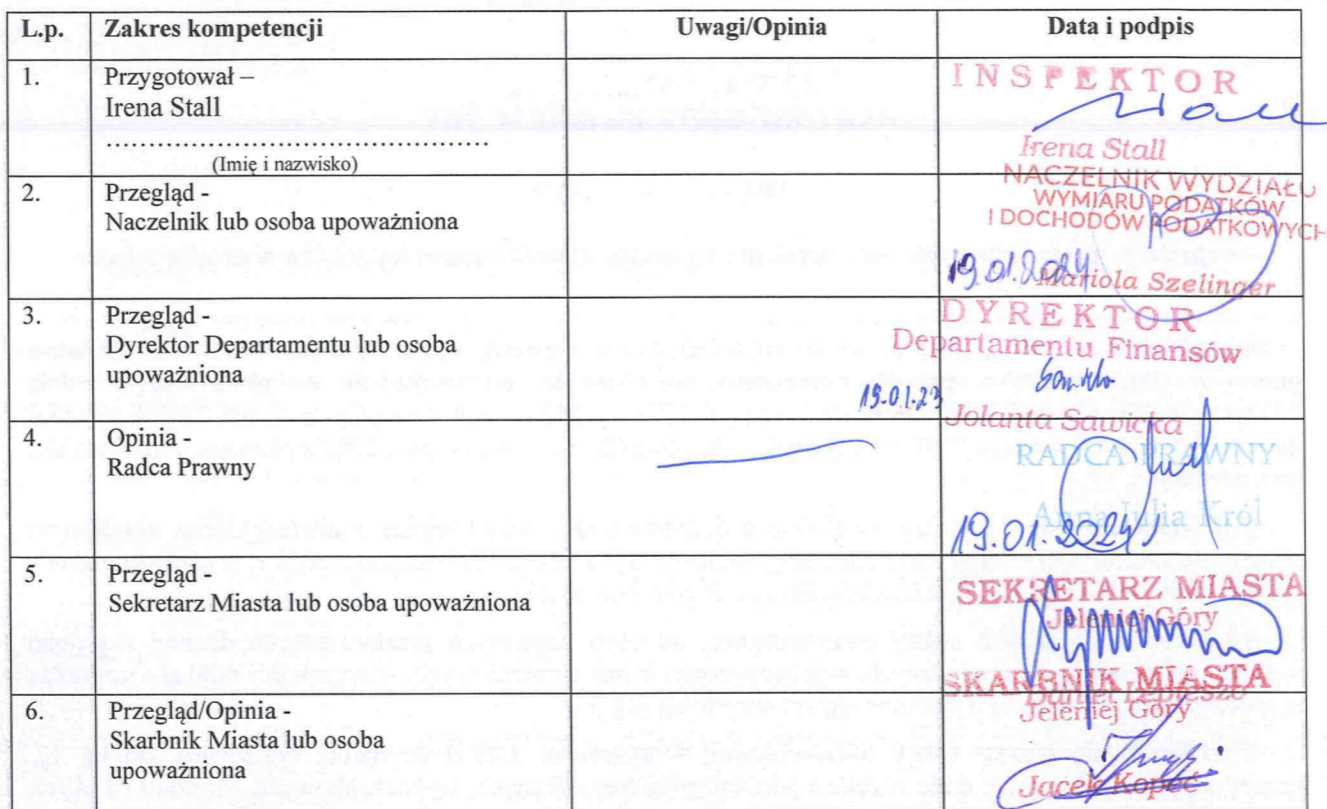 L.p. Zakres kompetencji Uwagi/Opinia Data i podpis
1. Przygotował –
Irena Stall
................................................
(Imię i nazwisko)
INSPEKTOR
Irena Stall
2. Przegląd -
Naczelnik lub osoba upoważniona
NACZELNIK WYDZIAŁU
WYMIARU PODATKÓW
I DOCHODÓW PODATKOWYCH
19.01.2024
Mariola Szelinger
3. Przegląd -
Dyrektor Departamentu lub osoba
upoważniona
DYREKTOR
Departamentu Finansów
19.01.23
Jolanta Sawicka
4. Opinia -
Radca Prawny
RADCA PRAWNY
Anna Julia Król
19.01.2024
5. Przegląd -
Sekretarz Miasta lub osoba upoważniona
SEKRETARZ MIASTA
Jeleniej Góry
6. Przegląd/Opinia -
Skarbnik Miasta lub osoba
upoważniona
SKARBNIK MIASTA
Jeleniej Góry
Jacek Kopeć